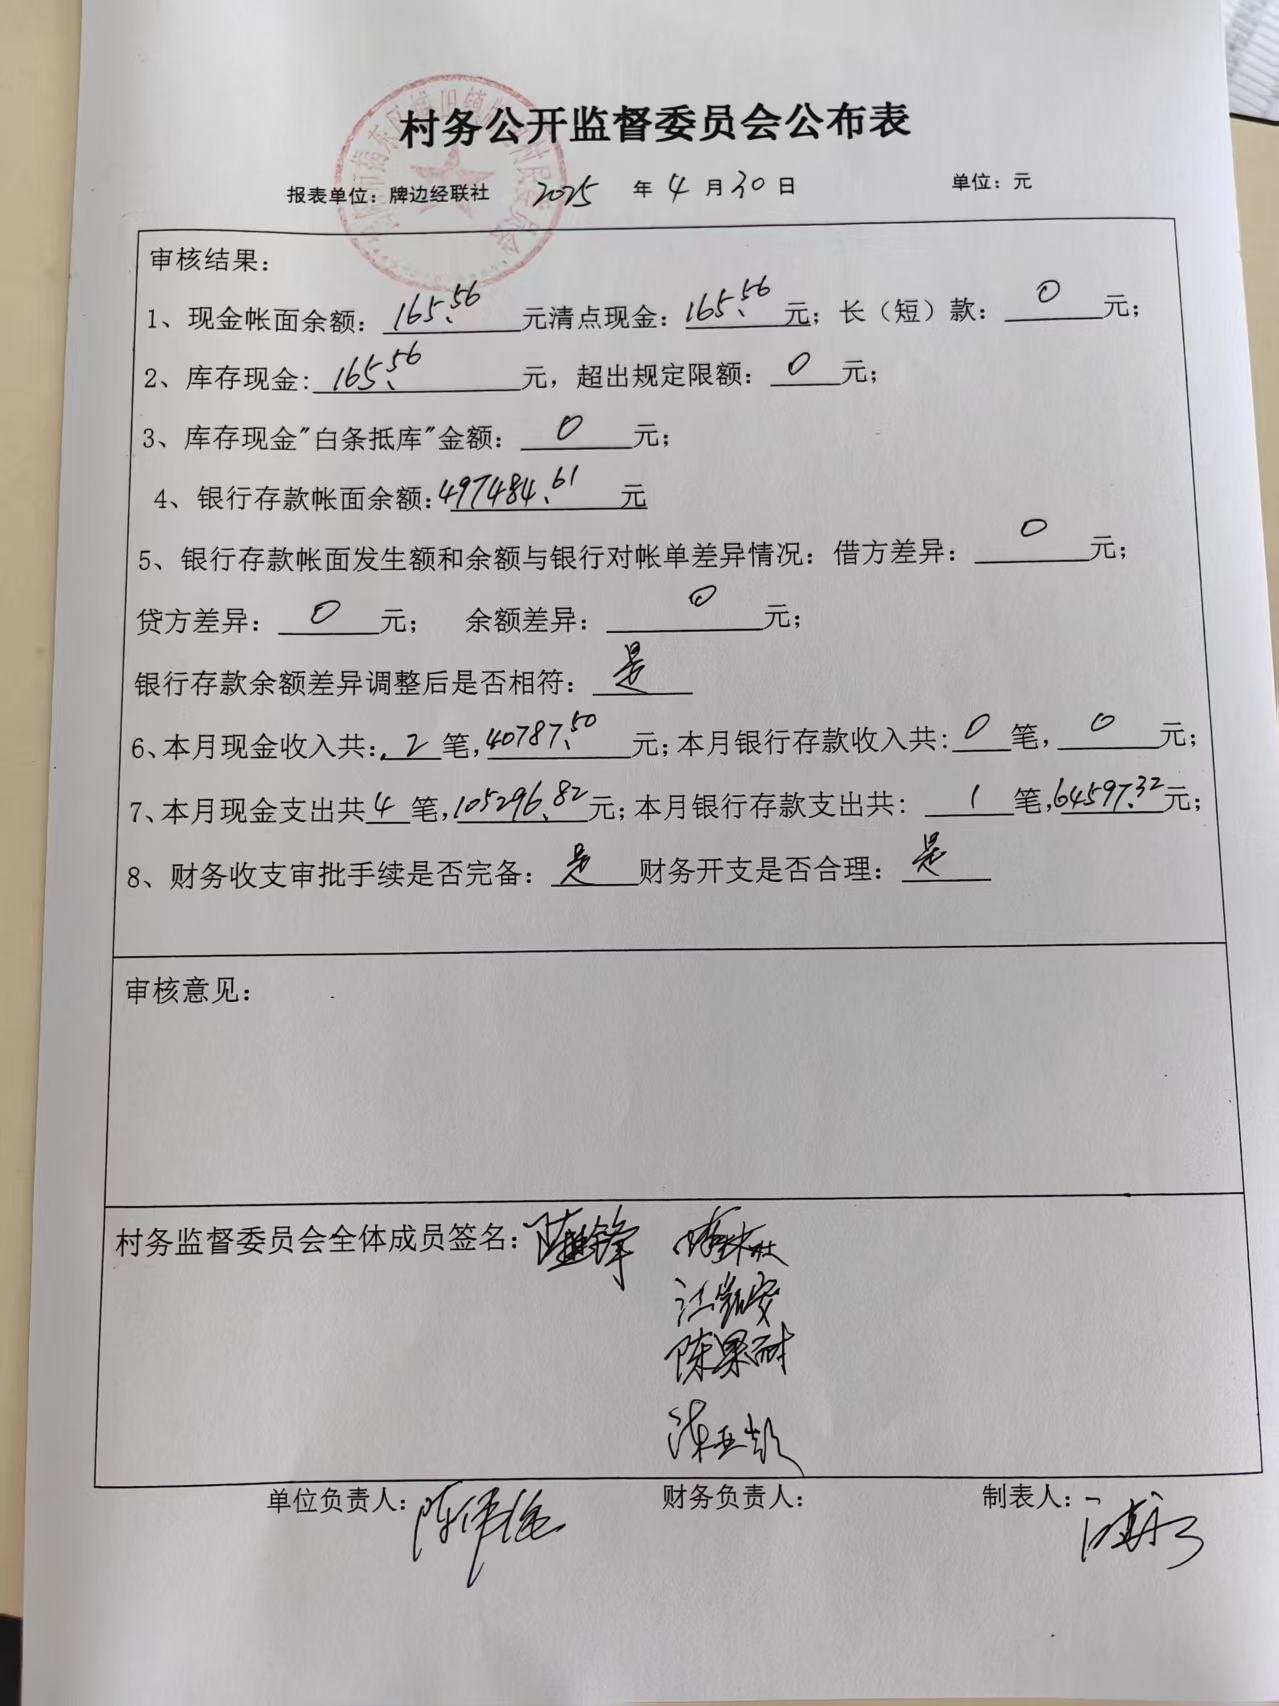 村务公开监督委员会公布表
报表单位：牌边经联社 2025 年 4 月 30 日 单位：元
审核结果：
1、现金帐面余额：165.56元清点现金：165.56元；长（短）款：0元；
2、库存现金：165.56元，超出规定限额：0元；
3、库存现金"白条抵库"金额：0元；
4、银行存款帐面余额：497484.61元
5、银行存款帐面发生额和余额与银行对帐单差异情况：借方差异：0元；
贷方差异：0元； 余额差异：0元；
银行存款余额差异调整后是否相符：是
6、本月现金收入共：2笔，40787.50元；本月银行存款收入共：0笔，0元；
7、本月现金支出共4笔，105296.82元；本月银行存款支出共：1笔，64597.32元；
8、财务收支审批手续是否完备：是 财务开支是否合理：是
审核意见：
村务监督委员会全体成员签名：
单位负责人： 财务负责人： 制表人：